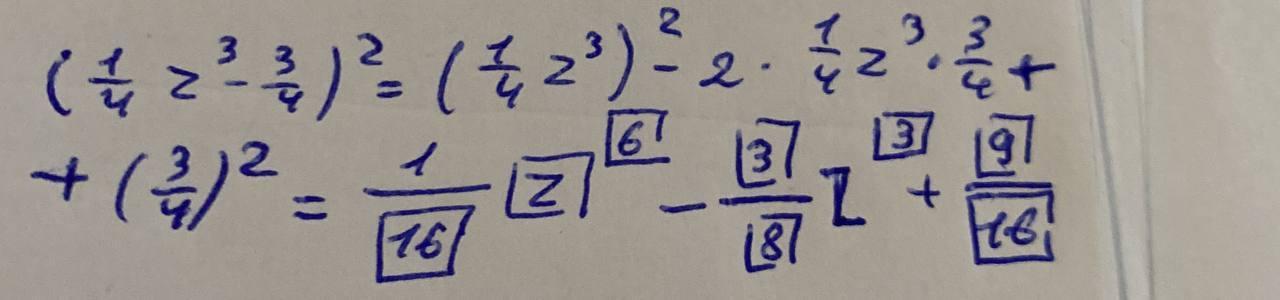 (1/4 z³ - 3/4)² = (1/4 z³)² - 2 · 1/4 z³ · 3/4 +
+ (3/4)² = 1/16 z⁶ - 3/8 z³ + 9/16